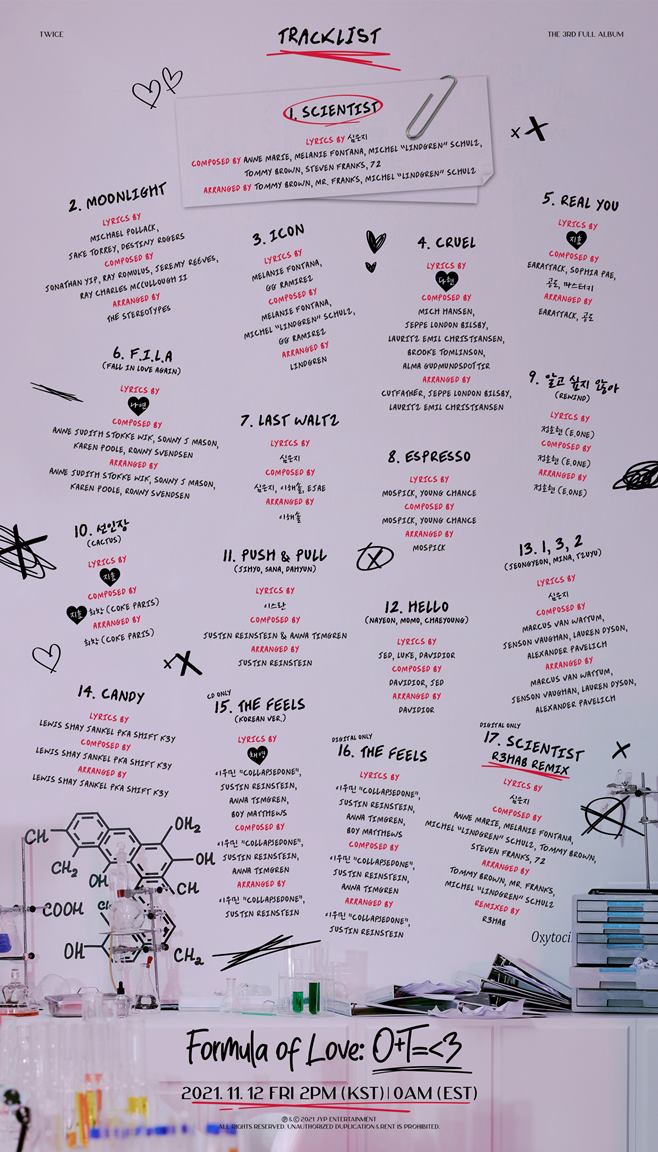 TWICE
TRACKLIST
THE 3RD FULL ALBUM
1. SCIENTIST
LYRICS BY 심은지
COMPOSED BY ANNE MARIE, MELANIE FONTANA, MICHEL "LINDGREN" SCHULZ,
TOMMY BROWN, STEVEN FRANKS, 72
ARRANGED BY TOMMY BROWN, MR. FRANKS, MICHEL "LINDGREN" SCHULZ
2. MOONLIGHT
LYRICS BY
MICHAEL POLLACK,
JAKE TORREY, DESTINY ROGERS
COMPOSED BY
JONATHAN YIP, RAY ROMULUS, JEREMY REEVES,
RAY CHARLES MCCULLOUGH II
ARRANGED BY
THE STEREOTYPES
3. ICON
LYRICS BY
MELANIE FONTANA,
GG RAMIREZ
COMPOSED BY
MELANIE FONTANA,
MICHEL "LINDGREN" SCHULZ,
GG RAMIREZ
ARRANGED BY
LINDGREN
4. CRUEL
LYRICS BY
다현
COMPOSED BY
MICH HANSEN,
JEPPE LONDON BILSBY,
LAURITZ EMIL CHRISTIANSEN,
BROOKE TOMLINSON,
ALMA GUDMUNDSDOTTIR
ARRANGED BY
CUTFATHER, JEPPE LONDON BILSBY,
LAURITZ EMIL CHRISTIANSEN
5. REAL YOU
LYRICS BY
지효
COMPOSED BY
EARATTACK, SOPHIA PAE,
공도, 마스터키
ARRANGED BY
EARATTACK, 공도
6. F.I.L.A
(FALL IN LOVE AGAIN)
LYRICS BY
나연
COMPOSED BY
ANNE JUDITH STOKKE WIK, SONNY J MASON,
KAREN POOLE, RONNY SVENDSEN
ARRANGED BY
ANNE JUDITH STOKKE WIK, SONNY J MASON,
KAREN POOLE, RONNY SVENDSEN
7. LAST WALTZ
LYRICS BY
심은지
COMPOSED BY
심은지, 이해솔, EJAE
ARRANGED BY
이해솔
8. ESPRESSO
LYRICS BY
MOSPICK, YOUNG CHANCE
COMPOSED BY
MOSPICK, YOUNG CHANCE
ARRANGED BY
MOSPICK
9. 알고 싶지 않아
(REWIND)
LYRICS BY
정호현 (E.ONE)
COMPOSED BY
정호현 (E.ONE)
ARRANGED BY
정호현 (E.ONE)
10. 선인장
(CACTUS)
LYRICS BY
지효
COMPOSED BY
지효 최량 (COKE PARIS)
ARRANGED BY
최량 (COKE PARIS)
11. PUSH & PULL
(JIHYO, SANA, DAHYUN)
LYRICS BY
이스란
COMPOSED BY
JUSTIN REINSTEIN & ANNA TIMGREN
ARRANGED BY
JUSTIN REINSTEIN
12. HELLO
(NAYEON, MOMO, CHAEYOUNG)
LYRICS BY
JED, LUKE, DAVIDIOR
COMPOSED BY
DAVIDIOR, JED
ARRANGED BY
DAVIDIOR
13. 1, 3, 2
(JEONGYEON, MINA, TZUYU)
LYRICS BY
심은지
COMPOSED BY
MARCUS VAN WATTUM,
JENSON VAUGHAN, LAUREN DYSON,
ALEXANDER PAVELICH
ARRANGED BY
MARCUS VAN WATTUM,
JENSON VAUGHAN, LAUREN DYSON,
ALEXANDER PAVELICH
14. CANDY
LYRICS BY
LEWIS SHAY JANKEL PKA SHIFT K3Y
COMPOSED BY
LEWIS SHAY JANKEL PKA SHIFT K3Y
ARRANGED BY
LEWIS SHAY JANKEL PKA SHIFT K3Y
CD ONLY
15. THE FEELS
(KOREAN VER.)
LYRICS BY
채영
이우민 "COLLAPSEDONE",
JUSTIN REINSTEIN,
ANNA TIMGREN,
BOY MATTHEWS
COMPOSED BY
이우민 "COLLAPSEDONE",
JUSTIN REINSTEIN,
ANNA TIMGREN
ARRANGED BY
이우민 "COLLAPSEDONE",
JUSTIN REINSTEIN
DIGITAL ONLY
16. THE FEELS
LYRICS BY
이우민 "COLLAPSEDONE",
JUSTIN REINSTEIN,
ANNA TIMGREN,
BOY MATTHEWS
COMPOSED BY
이우민 "COLLAPSEDONE",
JUSTIN REINSTEIN,
ANNA TIMGREN
ARRANGED BY
이우민 "COLLAPSEDONE",
JUSTIN REINSTEIN
DIGITAL ONLY
17. SCIENTIST
R3HAB REMIX
LYRICS BY
심은지
COMPOSED BY
ANNE MARIE, MELANIE FONTANA,
MICHEL "LINDGREN" SCHULZ, TOMMY BROWN,
STEVEN FRANKS, 72
ARRANGED BY
TOMMY BROWN, MR. FRANKS,
MICHEL "LINDGREN" SCHULZ
REMIXED BY
R3HAB
CH
OH2
OH
CH2
OH
CH
COOH
OH
CH2
Oxytoci
Formula of Love: O+T=<3
2021. 11. 12 FRI 2PM (KST) | 0AM (EST)
Ⓟ & © 2021 JYP ENTERTAINMENT
ALL RIGHTS RESERVED. UNAUTHORIZED DUPLICATION & RENT IS PROHIBITED.